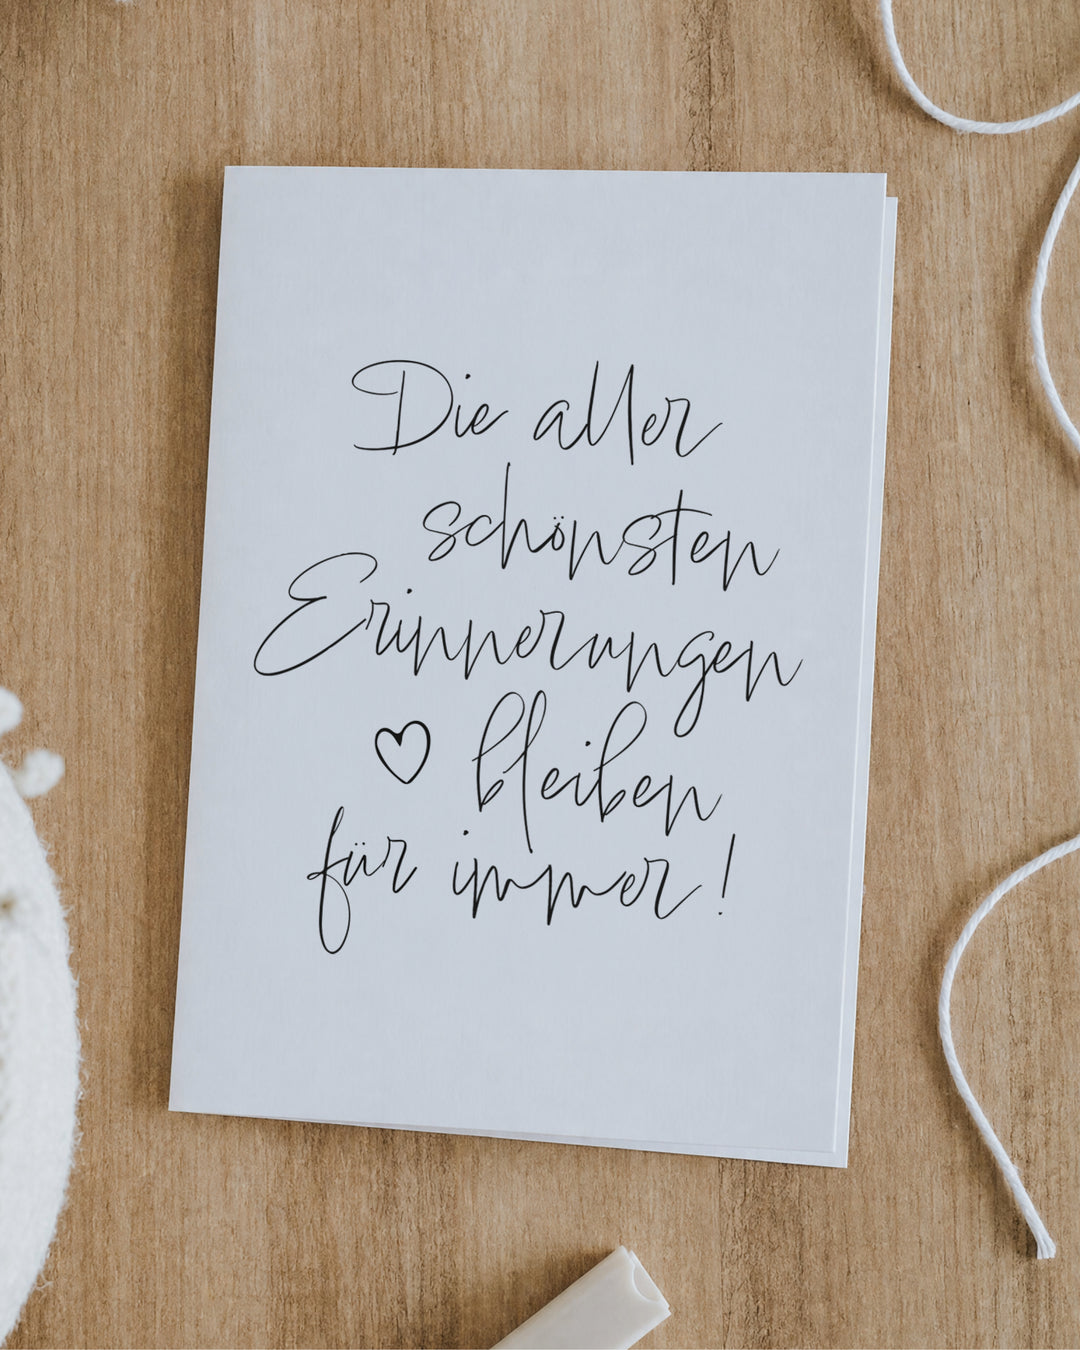 Die aller
schönsten
Erinnerungen
♡ bleiben
für immer!